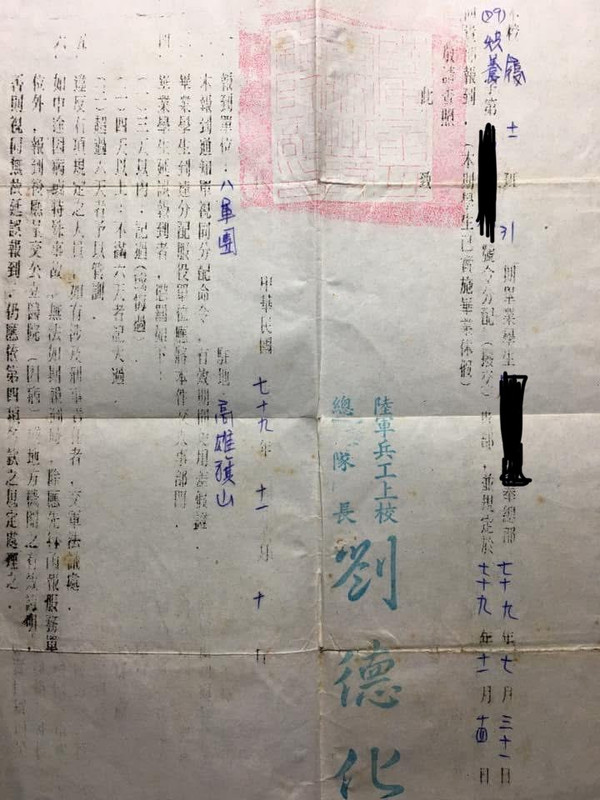 十一班 31 期畢業學生 奉總部七十九年七月三十一日
字第 號令分配(撥交)貴部,並規定於七十九年十一月十四日
報到,(本期學生已實施畢業休假)
敬請查照
此致
陸軍兵工上校
總隊長 劉德化
中華民國七十九年十一月十日
一 報到單位:八軍團 駐地 高雄旗山
本報到通知單視同分配命令,有效期間
畢業學生到達分配服役單位應將本件交人事部門.
四 畢業學生延誤報到者,懲罰如下:
(一)三天以內:記過(檢悔過)
(二)四天以上:不滿六天者記大過.
(三)超過六天者予以管訓.
五 違反右項規定之人員,如有涉及刑事責任者,交軍法議處.
六 如中途因病或特殊事故,無法如期報到時,除應先行函報服務單
位外,報到後應呈交公立醫院(因病)或地方機關之有效證明,
否則視同無故延誤報到,仍應依第四項 款之規定處理之.